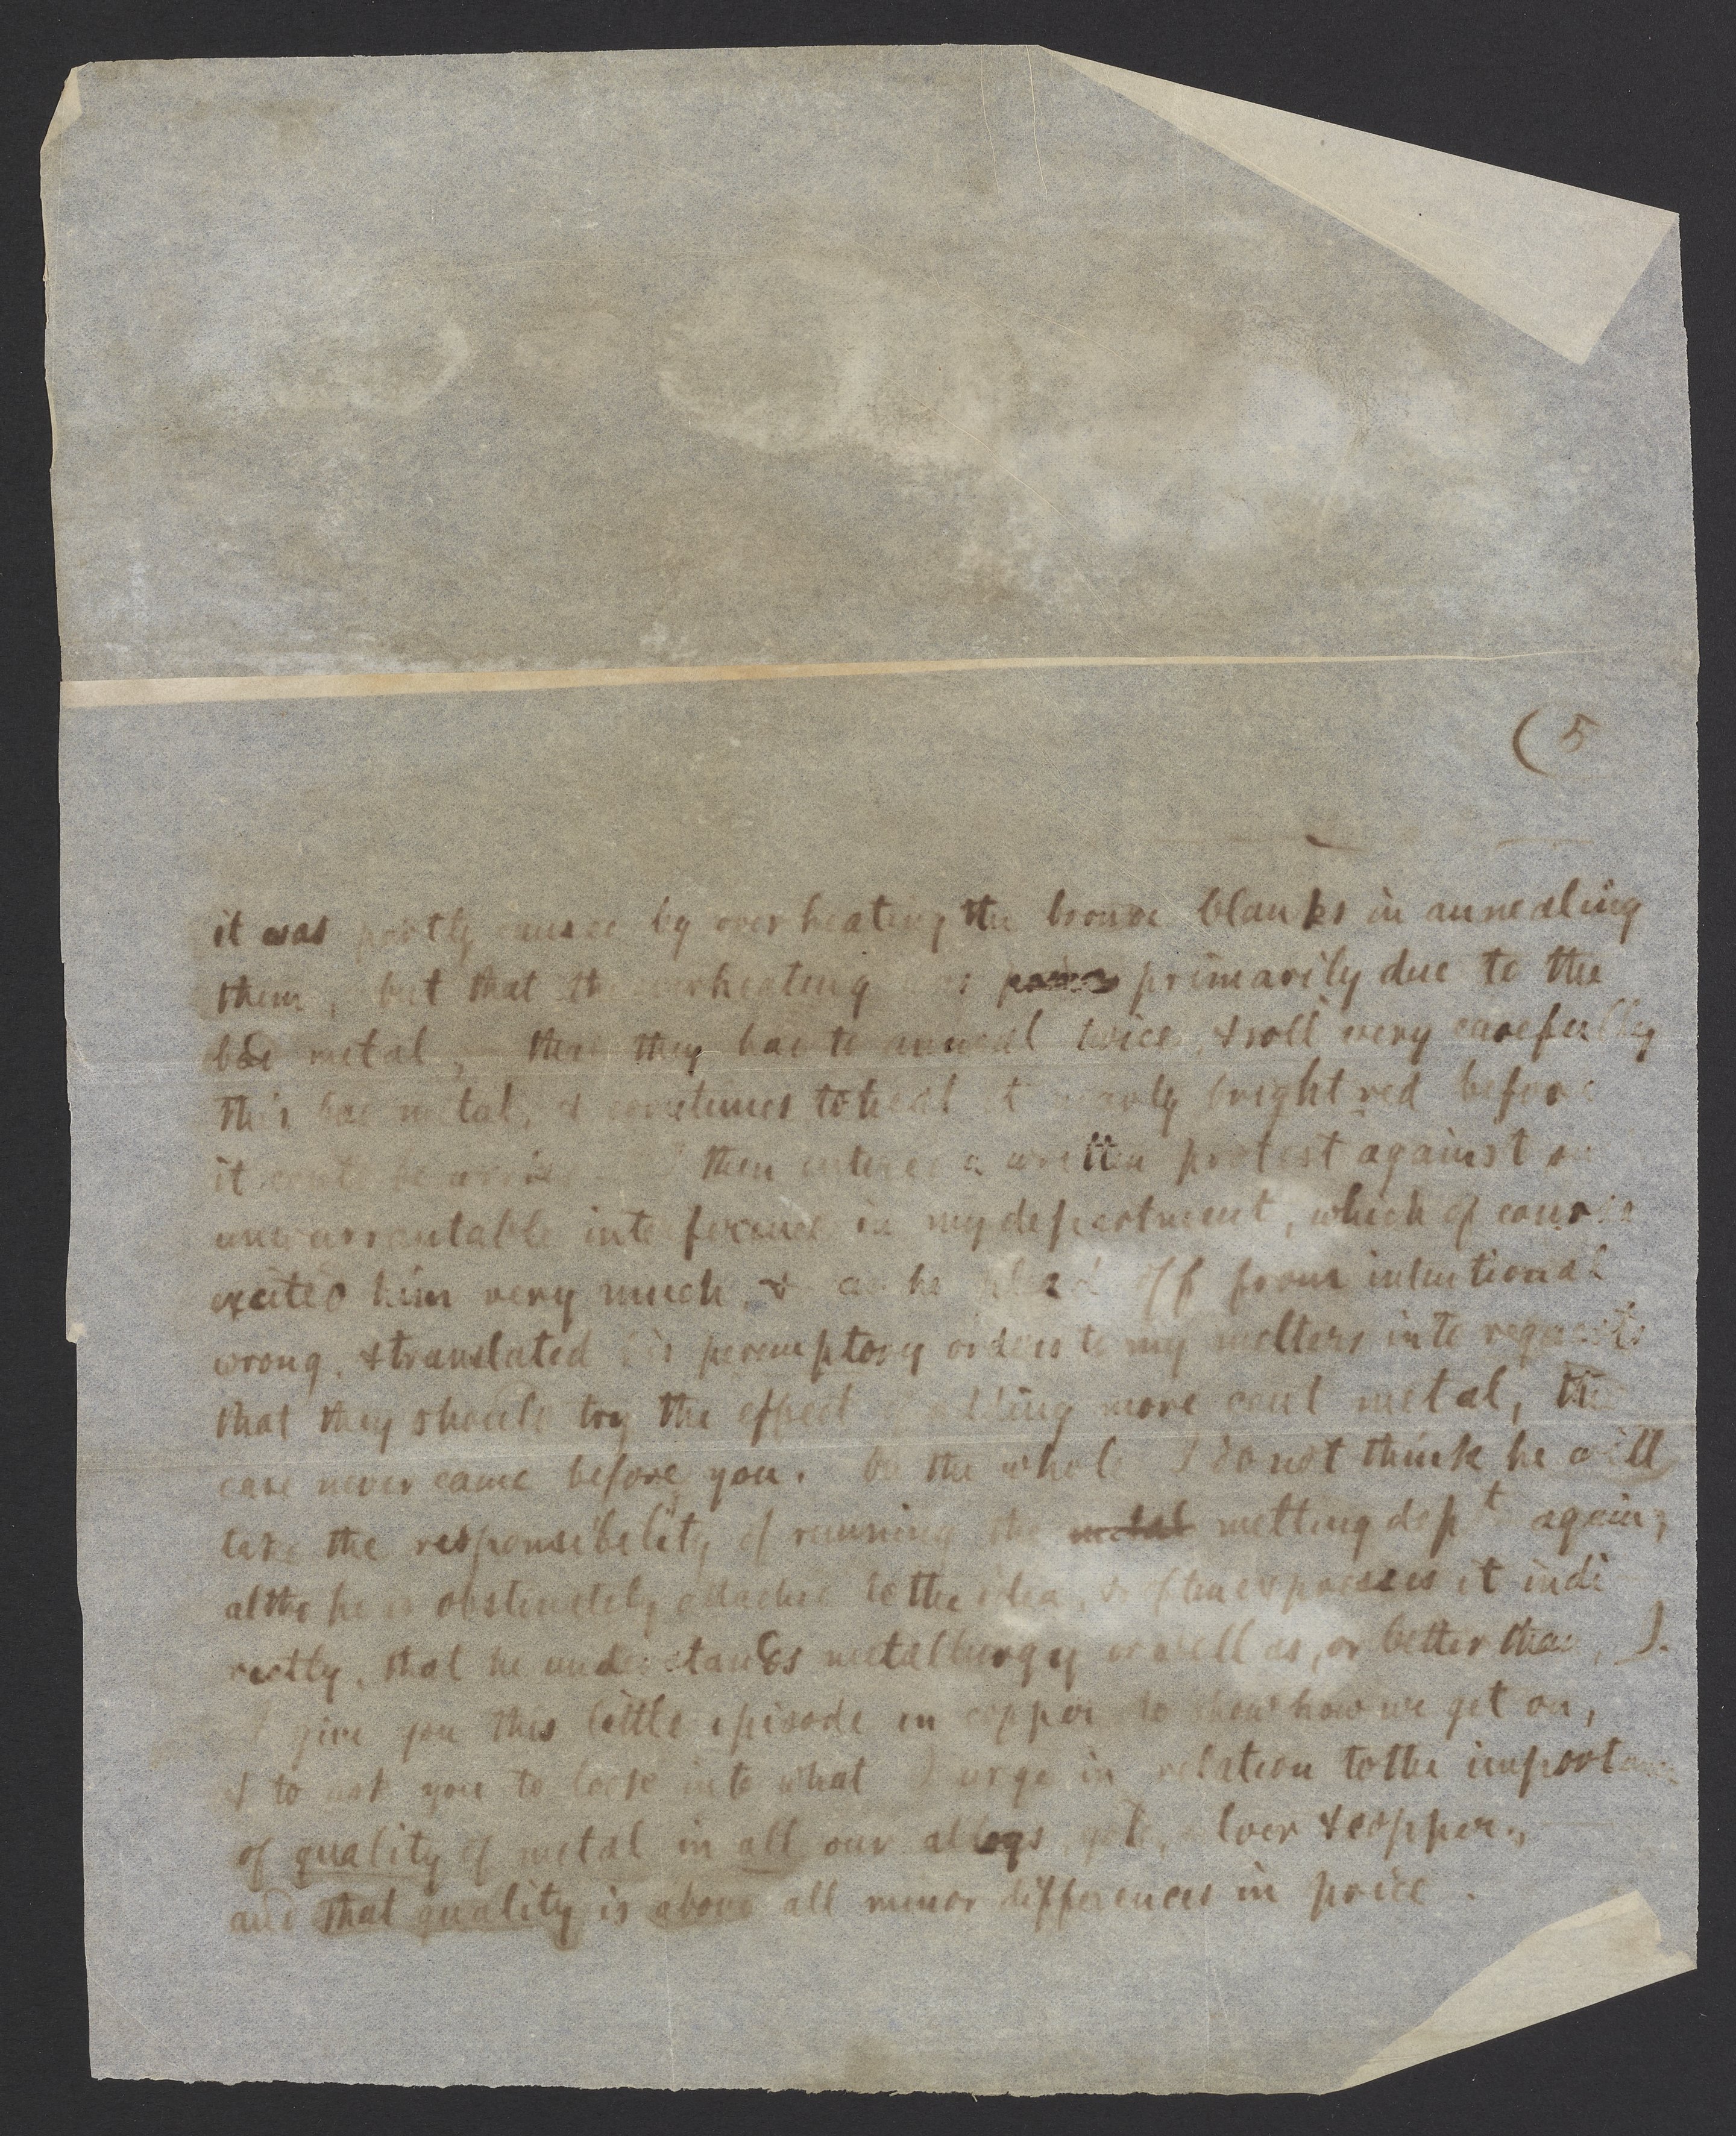 (5
it was partly caused by overheating the bronze blanks in annealing
them, but that the overheating was primarily due to the
bad metal, that they had to anneal twice, & roll very carefully
this bad metal, & sometimes to heat it nearly bright red before
it could be then entered a written protest against
unwarrantable interference in my department, which of course
excited him very much, & as he off from intentional
wrong, & translated his peremptory orders to my melters into requests
that they should try the effect of adding more cast metal, the
case never came before you. On the whole I do not think he will
take the responsibility of running the metal melting dept again,
altho he is obstinately attached to the idea, & often expresses it indi
rectly, that he understands metallurgy as well as, or better than, I.
I give you this little episode in copper to show how we get on,
& to ask you to look into what I urge in relation to the importance
of quality of metal in all our alloys, gold, silver & copper,
and that quality is above all minor differences in price.